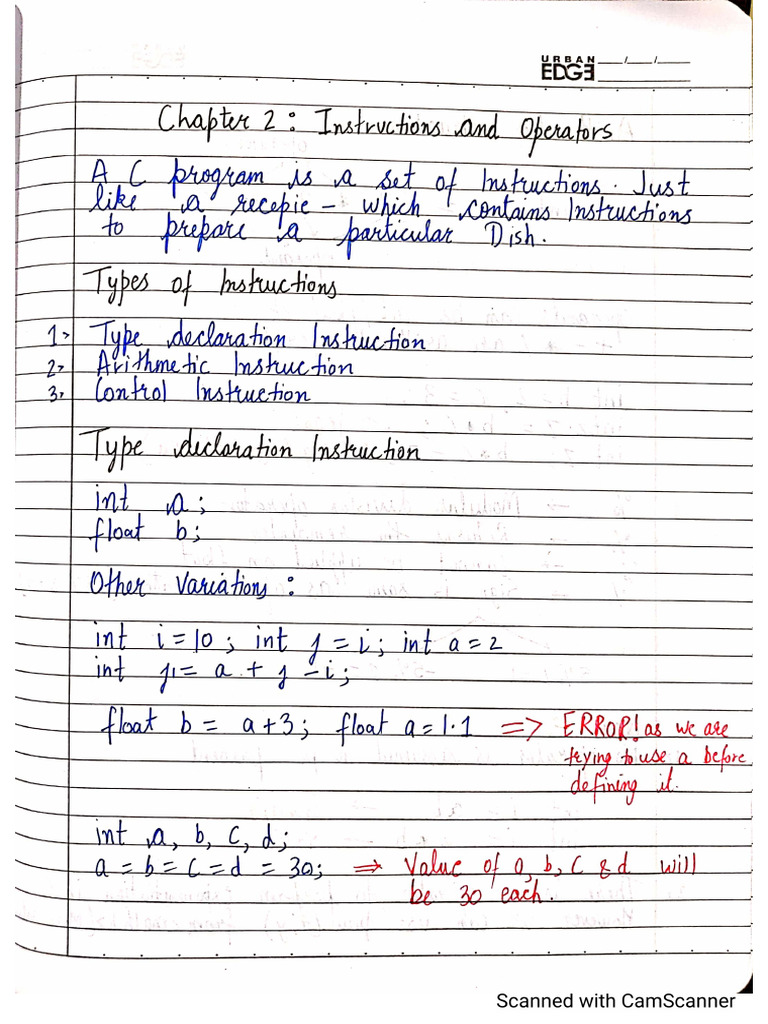 URBAN
EDGE
Chapter 2: Instructions and Operators
A C program is a set of Instructions. Just
like a recepie - which contains Instructions
to prepare a particular Dish.
Types of Instructions
1> Type declaration Instruction
2> Arithmetic Instruction
3> Control Instruction
Type declaration Instruction
int a;
float b;
Other Variations:
int i=10; int j=i; int a=2
int j1= a + j -i;
float b = a+3; float a=1.1 => ERROR! as we are
trying to use a before
defining it.
int a, b, c, d;
a = b = c = d = 30; => Value of a, b, c & d will
be 30 each.
Scanned with CamScanner